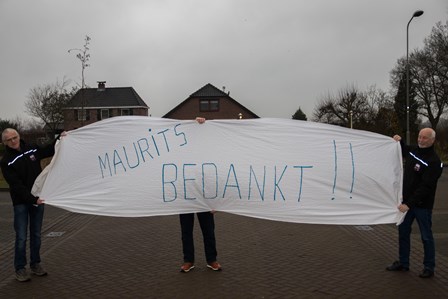 MAURiTS
BEDANKT !!